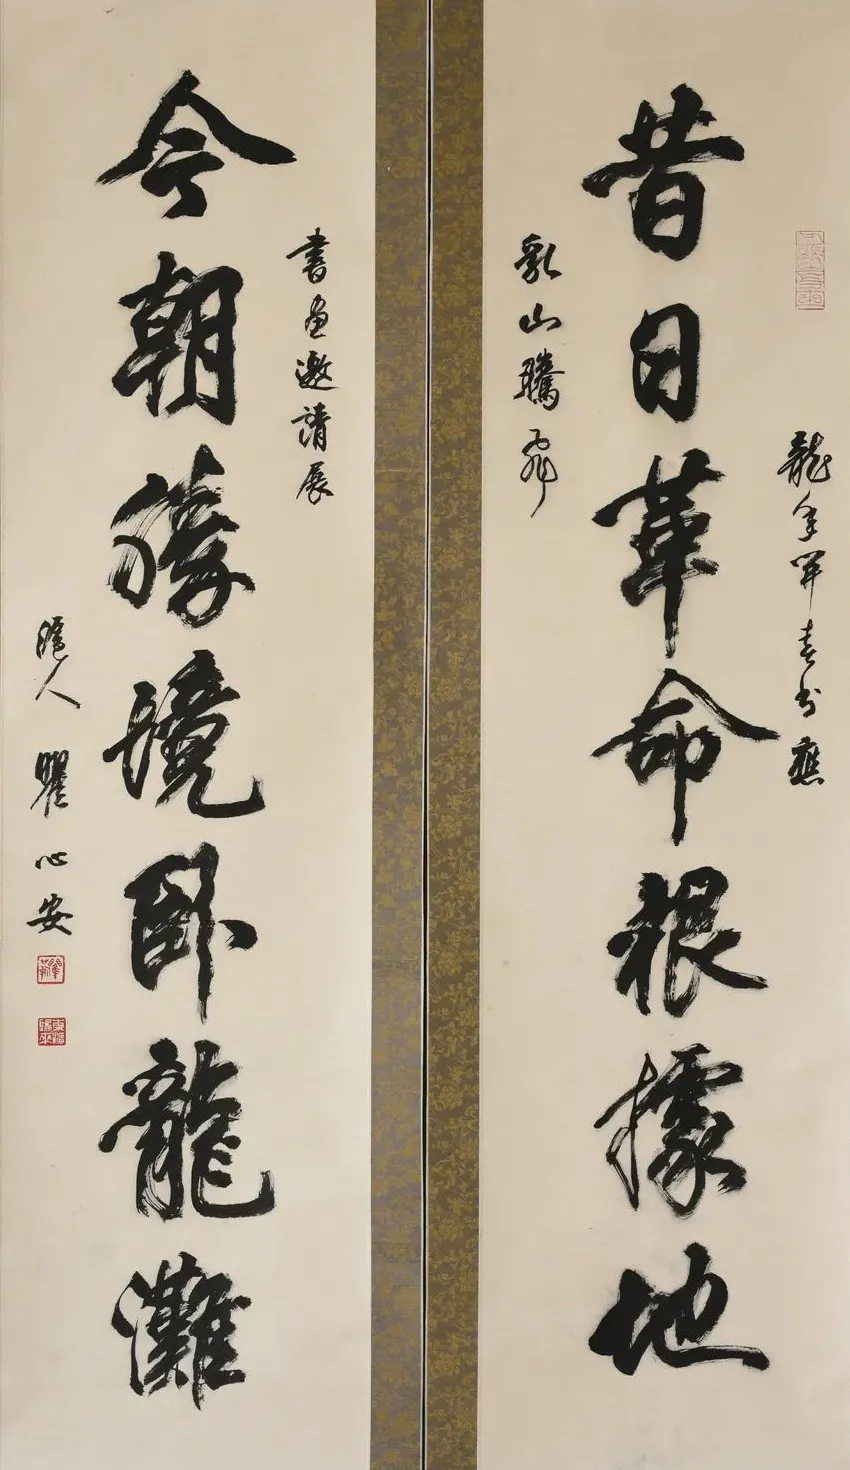 龍年開春書應
昔日革命根據地
乳山騰飛
書畫邀請展
今朝勝境卧龍灘
滬人瞿心安